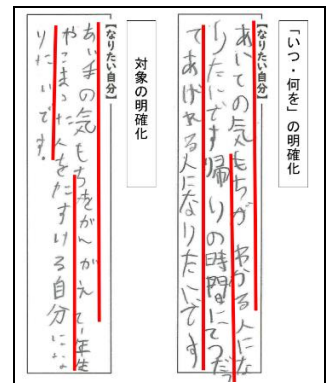 「いつ・何を」の明確化
【なりたい自分】
あいての気もちが わかる人にな
りたいです帰りの時間にてつだっ
てあげれる人になりたいです
対象の明確化
【なりたい自分】
あい手の気もちをかんがえて一年生
やこまった人をたすける自分にな
りたいです。